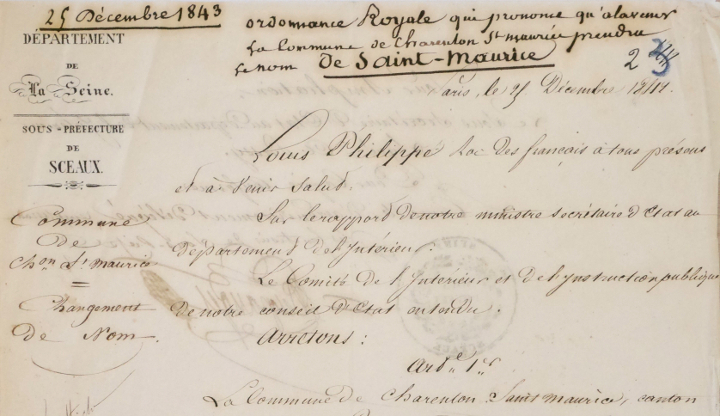 25 Décembre 1843
ordonnance Royale qui prononce qu'alavenir
La Commune de Charenton St maurice prendra
Le nom de Saint-Maurice
DÉPARTEMENT
DE
La Seine.
SOUS-PRÉFECTURE
DE
SCEAUX.
Commune
De
Chon St maurice
=
Changement
De Nom.
2
Paris, le 25 Décembre
Louis Philippe Roi Des français à tous présens
et à Venir Salut.
Sur lerapport Denotre ministre secrétaire d'Etat au
département Del'Intérieur.
Le Comité De l'Intérieur et Del'ynstruction publique
De notre conseil D'Etat entendu.
Arretons :
Art. 1er
La Commune De Charenton Saint maurice, canton